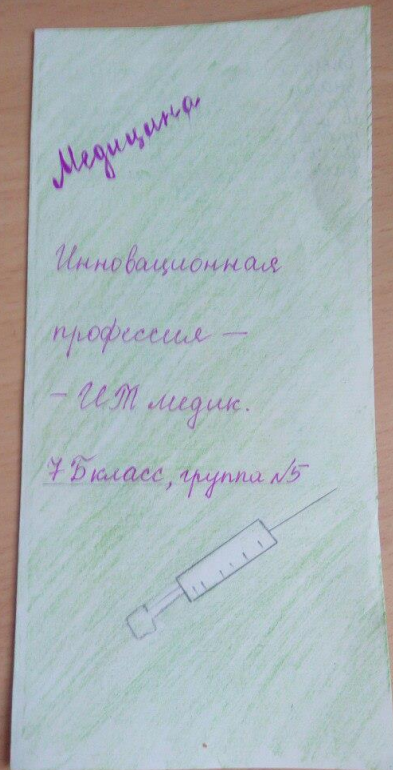 Медицина
Инновационная
профессия —
— ИТ медик.
7 Б класс, группа №5